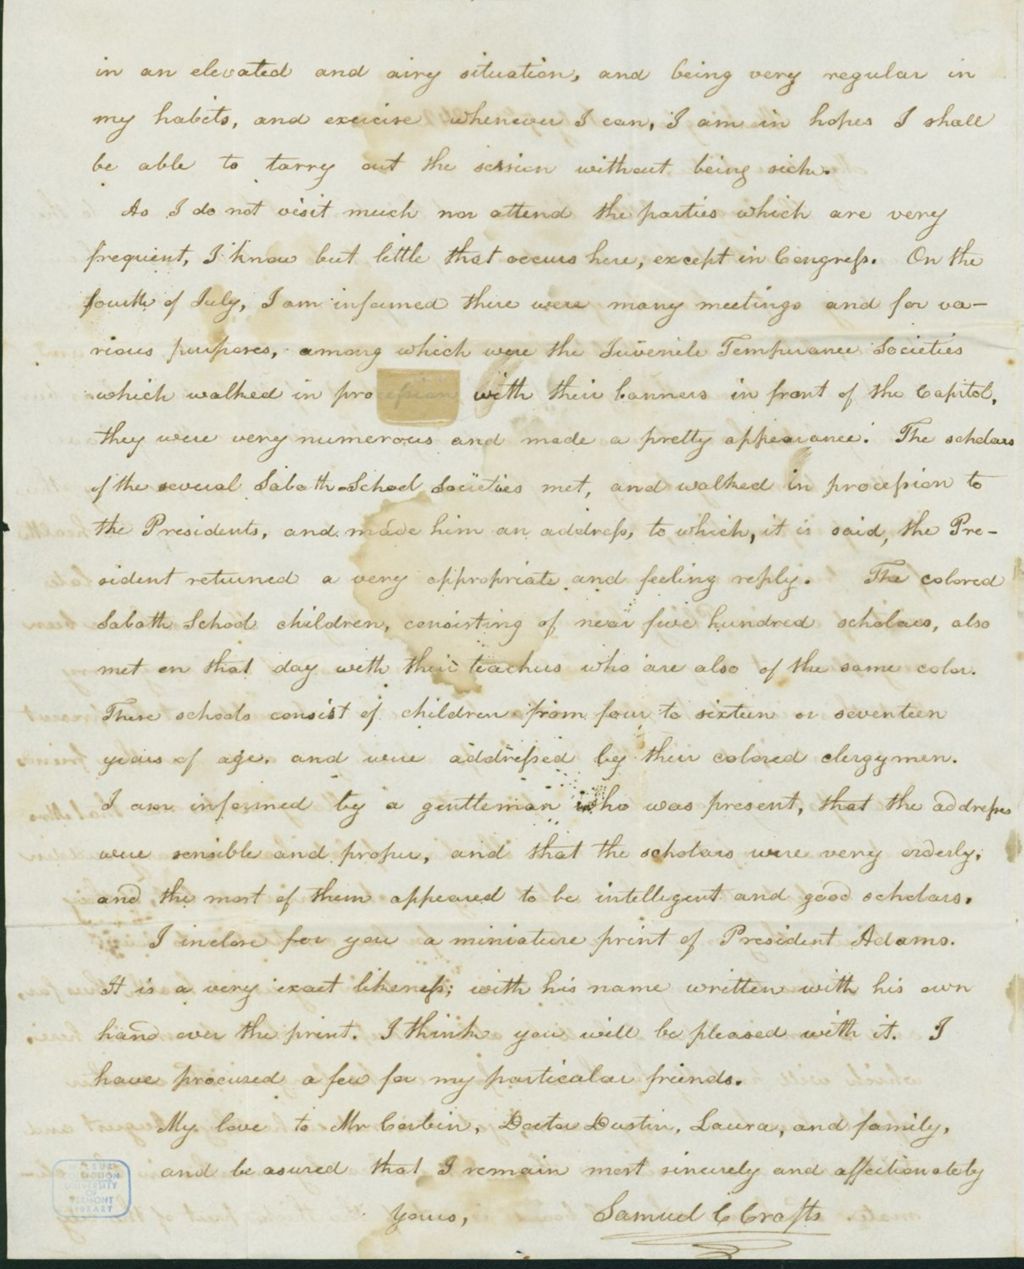 in an elevated and airy situation, and being very regular in
my habits, and excicise whenever I can, I am in hopes I shall
be able to tarry out the session without being sick.
As I do not visit much nor attend the parties which are very
frequent, I know but little that occurs here, except in Congress. On the
fourth of July, I am informed there were many meetings and for va-
rious purposes, among which were the Juvenile Temperance Societies
which walked in procession with their banners in front of the Capitol,
they were very numerous and made a pretty appearance. The scholars
of the several Sabath School Societies met, and walked in procession to
the Presidents, and made him an address, to which, it is said, the Pre-
sident returned a very appropriate and feeling reply. The colored
Sabath School children, consisting of near five hundred scholars, also
met on that day with their teachers who are also of the same color.
These schools consist of children from four to sixteen or seventeen
years of age, and were addressed by their colored clergymen.
I am informed by a gentleman who was present, that the addresses
were sensible and proper, and that the scholars were very orderly,
and the most of them appeared to be intellegent and good scholars.
I inclose for you a miniature print of President Adams.
It is a very exact likeness; with his name written with his own
hand over the print. I think you will be pleased with it. I
have procured a few for my particular friends.
My love to Mr Corbin, Doctor Dustin, Laura, and family,
and be assured that I remain most sincerely and affectionately
Yours, Samuel C Crafts
UNIVERSITY
OF
VERMONT
LIBRARY